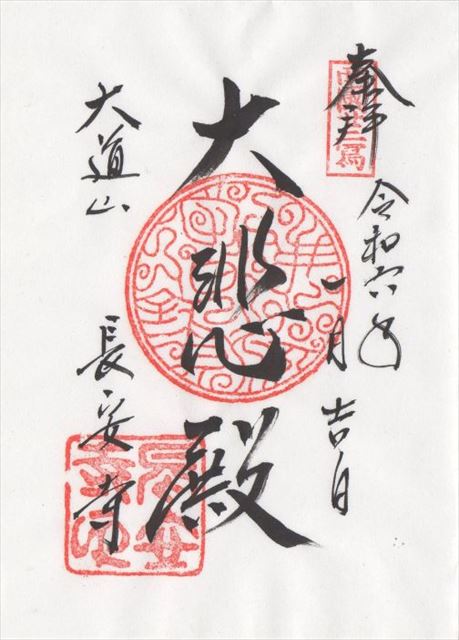 奉拝
令和六年
一月吉日
大悲殿
大道山
長安寺